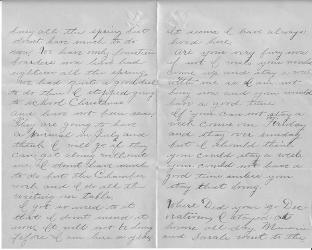 busy all the spring but
dont have much to do
now. We have only fourteen
boarders we have had
eighteen all this spring.
We had quite a good deal
to do then I stopped going
to school Christmas
and have not been since
They are going to have
a Normal in July and
think I will go if they
can get along without
me. I dont have much
to do but the Chamber
work and I do all the
waiting on table.
I got so used to it
that I dont mind it
now. It will not be long
before I am
It seems I have always
lived here.
Are you very busy now
if not I wish you would
come up and stay a week
with me as I am not
busy now and you would
have a good time
If you can not stay a
week come up Friday
and stay over sunday
but I should think
you could stay a week
you could not have a
good time unless you
stay that long.
Where Did you go Dec-
oration day I stayed at
home all day Minnie
and Sarah went to the